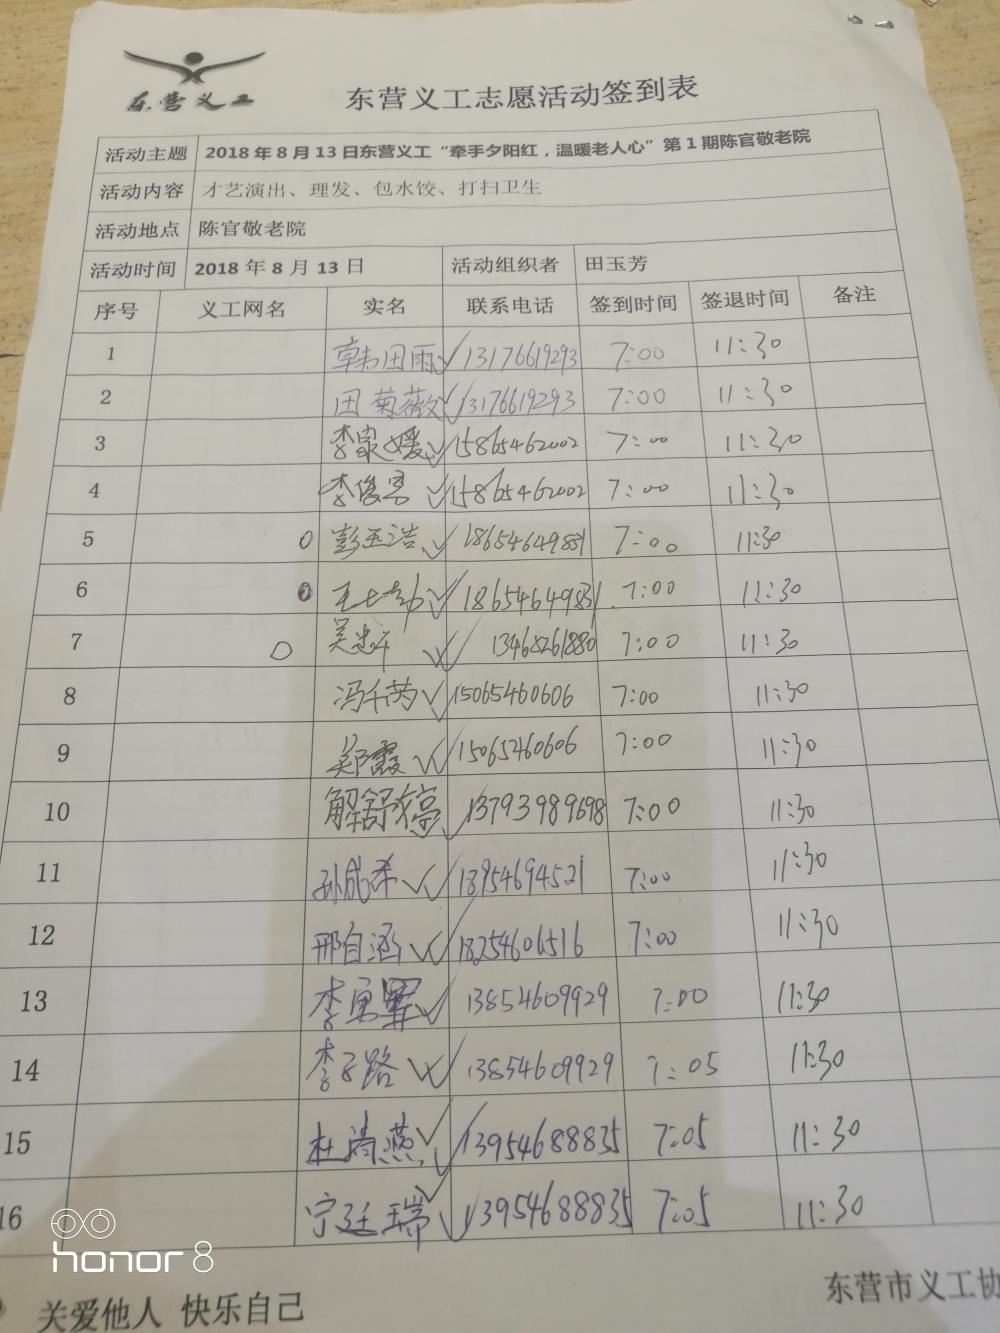 东营义工
东营义工志愿活动签到表
活动主题 2018年8月13日东营义工“牵手夕阳红，温暖老人心”第1期陈官敬老院
活动内容 才艺演出、理发、包水饺、打扫卫生
活动地点 陈官敬老院
活动时间 2018年8月13日 活动组织者 田玉芳
序号 义工网名 实名 联系电话 签到时间 签退时间 备注
1 韩田雨 13176619293 7:00 11:30
2 田菊薇 13176619293 7:00 11:30
3 李家媛 15865462002 7:00 11:30
4 李俊亮 15865462002 7:00 11:30
5 彭玉浩 18654649831 7:00 11:30
6 18654649831 7:00 11:30
7 13468261880 7:00 11:30
8 冯千芮 15065460606 7:00 11:30
9 郑霞 15065460606 7:00 11:30
10 解舒婷 13793989698 7:00 11:30
11 孙成希 18954694521 7:00 11:30
12 邢自涵 18254606516 7:00 11:30
13 李 13854609929 7:00 11:30
14 李子路 13854609929 7:05 11:30
15 杜清燕 13954688835 7:05 11:30
16 宁廷瑞 13954688835 7:05 11:30
honor 8
关爱他人 快乐自己
东营市义工协